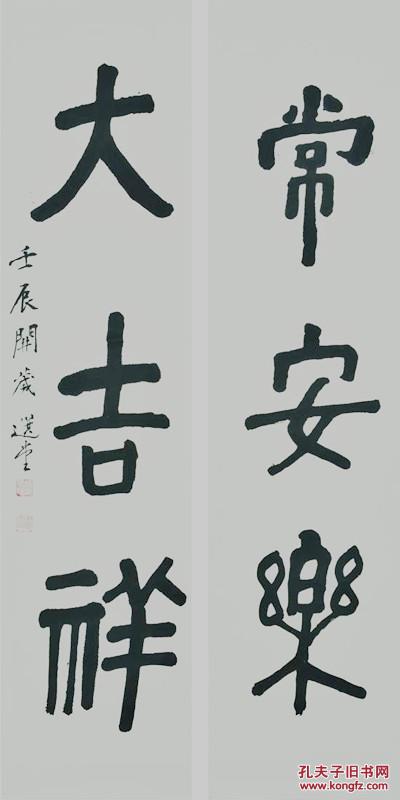 常安樂
大吉祥
壬辰開歲 選堂
孔夫子旧书网
www.kongfz.com